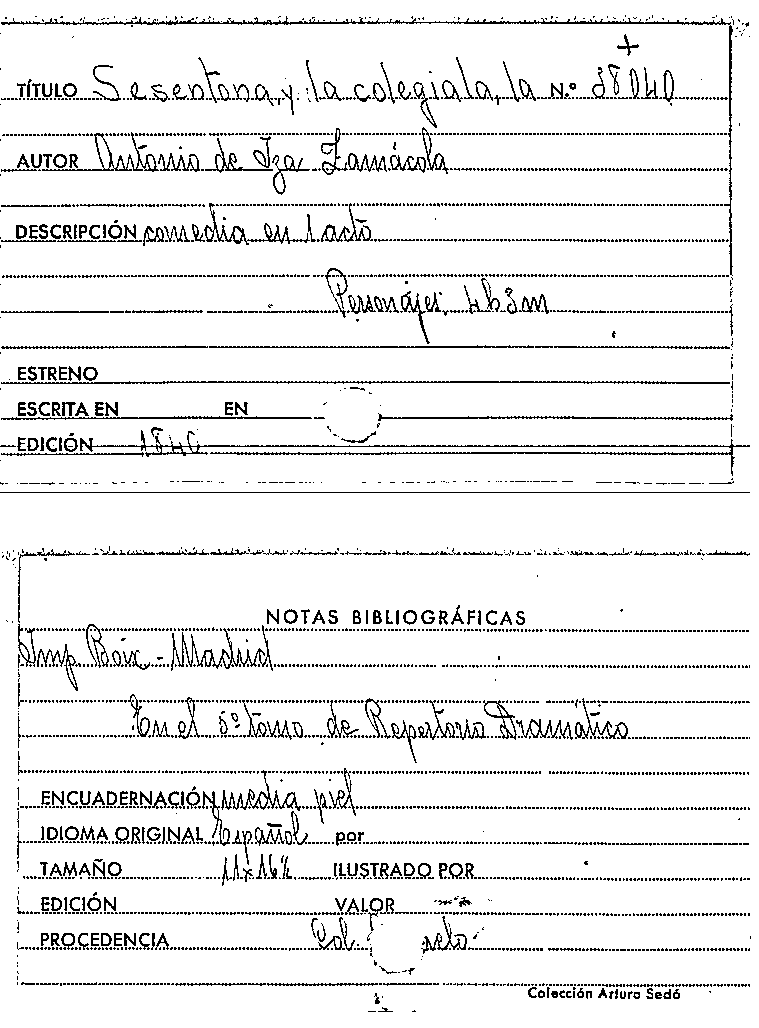 +
TÍTULO Sesentona, y la colegiala, la N.º 38040
AUTOR Antonio de Iza Zamácola
DESCRIPCIÓN comedia en 1 acto
Personajes: 4h3m
ESTRENO
ESCRITA EN EN
EDICIÓN 1840
NOTAS BIBLIOGRÁFICAS
Imp Boix - Madrid
En el 5º tomo de Repertorio Dramático
ENCUADERNACIÓN media piel
IDIOMA ORIGINAL Español por
TAMAÑO 11x16½ ILUSTRADO POR
EDICIÓN VALOR
PROCEDENCIA Col.
Colección Arturo Sedó